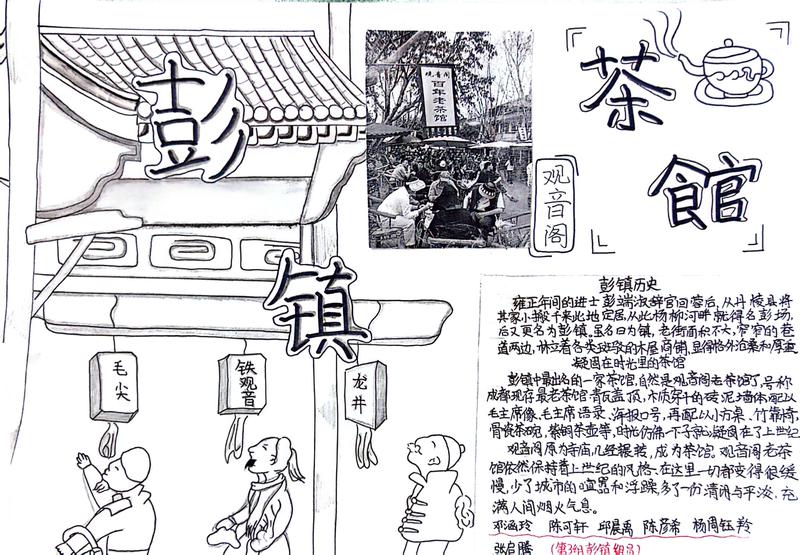 彭
镇
观音阁
百年老茶馆
茶
館
观音阁
毛尖
铁观音
龙井
彭镇历史
雍正年间的进士彭端淑辞官回蓉后，从丹棱县将
其家小搬于来此地定居，从此杨柳河畔就得名彭场，
后又更名为彭镇。虽名曰为镇，老街面积不大，窄窄的巷
道两边，林立着各类斑驳的木屋商铺，显得格外沧桑和厚重
凝固在时光里的茶馆
彭镇中最出名的一家茶馆，自然是观音阁老茶馆了，号称
成都现存最老茶馆，青瓦盖顶，木质穿斗的砖泥墙体，配以
毛主席像、毛主席语录、海报口号，再配以小方桌、竹靠椅，
骨瓷茶碗，紫铜茶壶等，时光仿佛一下子就凝固在了上世纪
观音阁原为寺庙，几经辗转，成为茶馆。观音阁老茶
馆依然保持着上世纪的风格，在这里一切都变得很缓
慢，少了城市的喧嚣和浮躁，多了一份清闲与平淡，充
满人间烟火气息。
邓涵玲 陈可轩 邱晨禹 陈彦希 杨周钰羚
张启腾 （第3组彭镇组员）